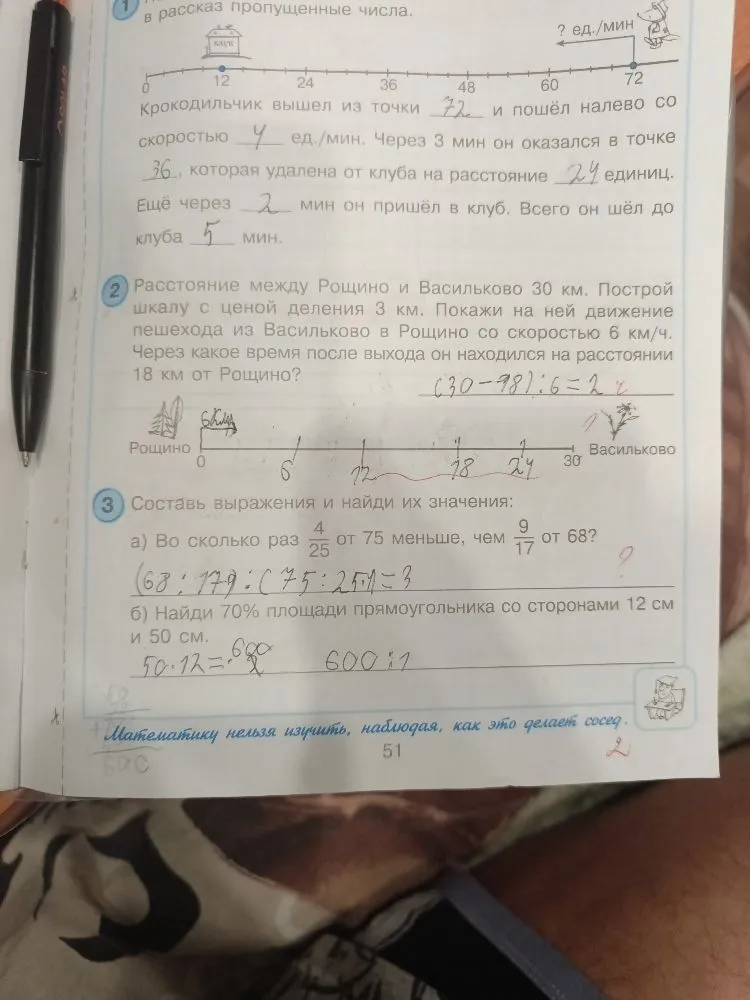 1
в рассказ пропущенные числа.
КЛУБ
? ед./мин
0 12 24 36 48 60 72
Крокодильчик вышел из точки 72 и пошёл налево со
скоростью 4 ед./мин. Через 3 мин он оказался в точке
36, которая удалена от клуба на расстояние 24 единиц.
Ещё через 2 мин он пришёл в клуб. Всего он шёл до
клуба 5 мин.
2 Расстояние между Рощино и Васильково 30 км. Построй
шкалу с ценой деления 3 км. Покажи на ней движение
пешехода из Васильково в Рощино со скоростью 6 км/ч.
Через какое время после выхода он находился на расстоянии
18 км от Рощино?
(30-98):6=2 ч
Рощино 0 6 12 18 24 30 Васильково
3 Составь выражения и найди их значения:
а) Во сколько раз 4/25 от 75 меньше, чем 9/17 от 68?
?
б) Найди 70% площади прямоугольника со сторонами 12 см
и 50 см.
50·12= 600 600:1
Математику нельзя изучить, наблюдая, как это делает сосед.
51
2